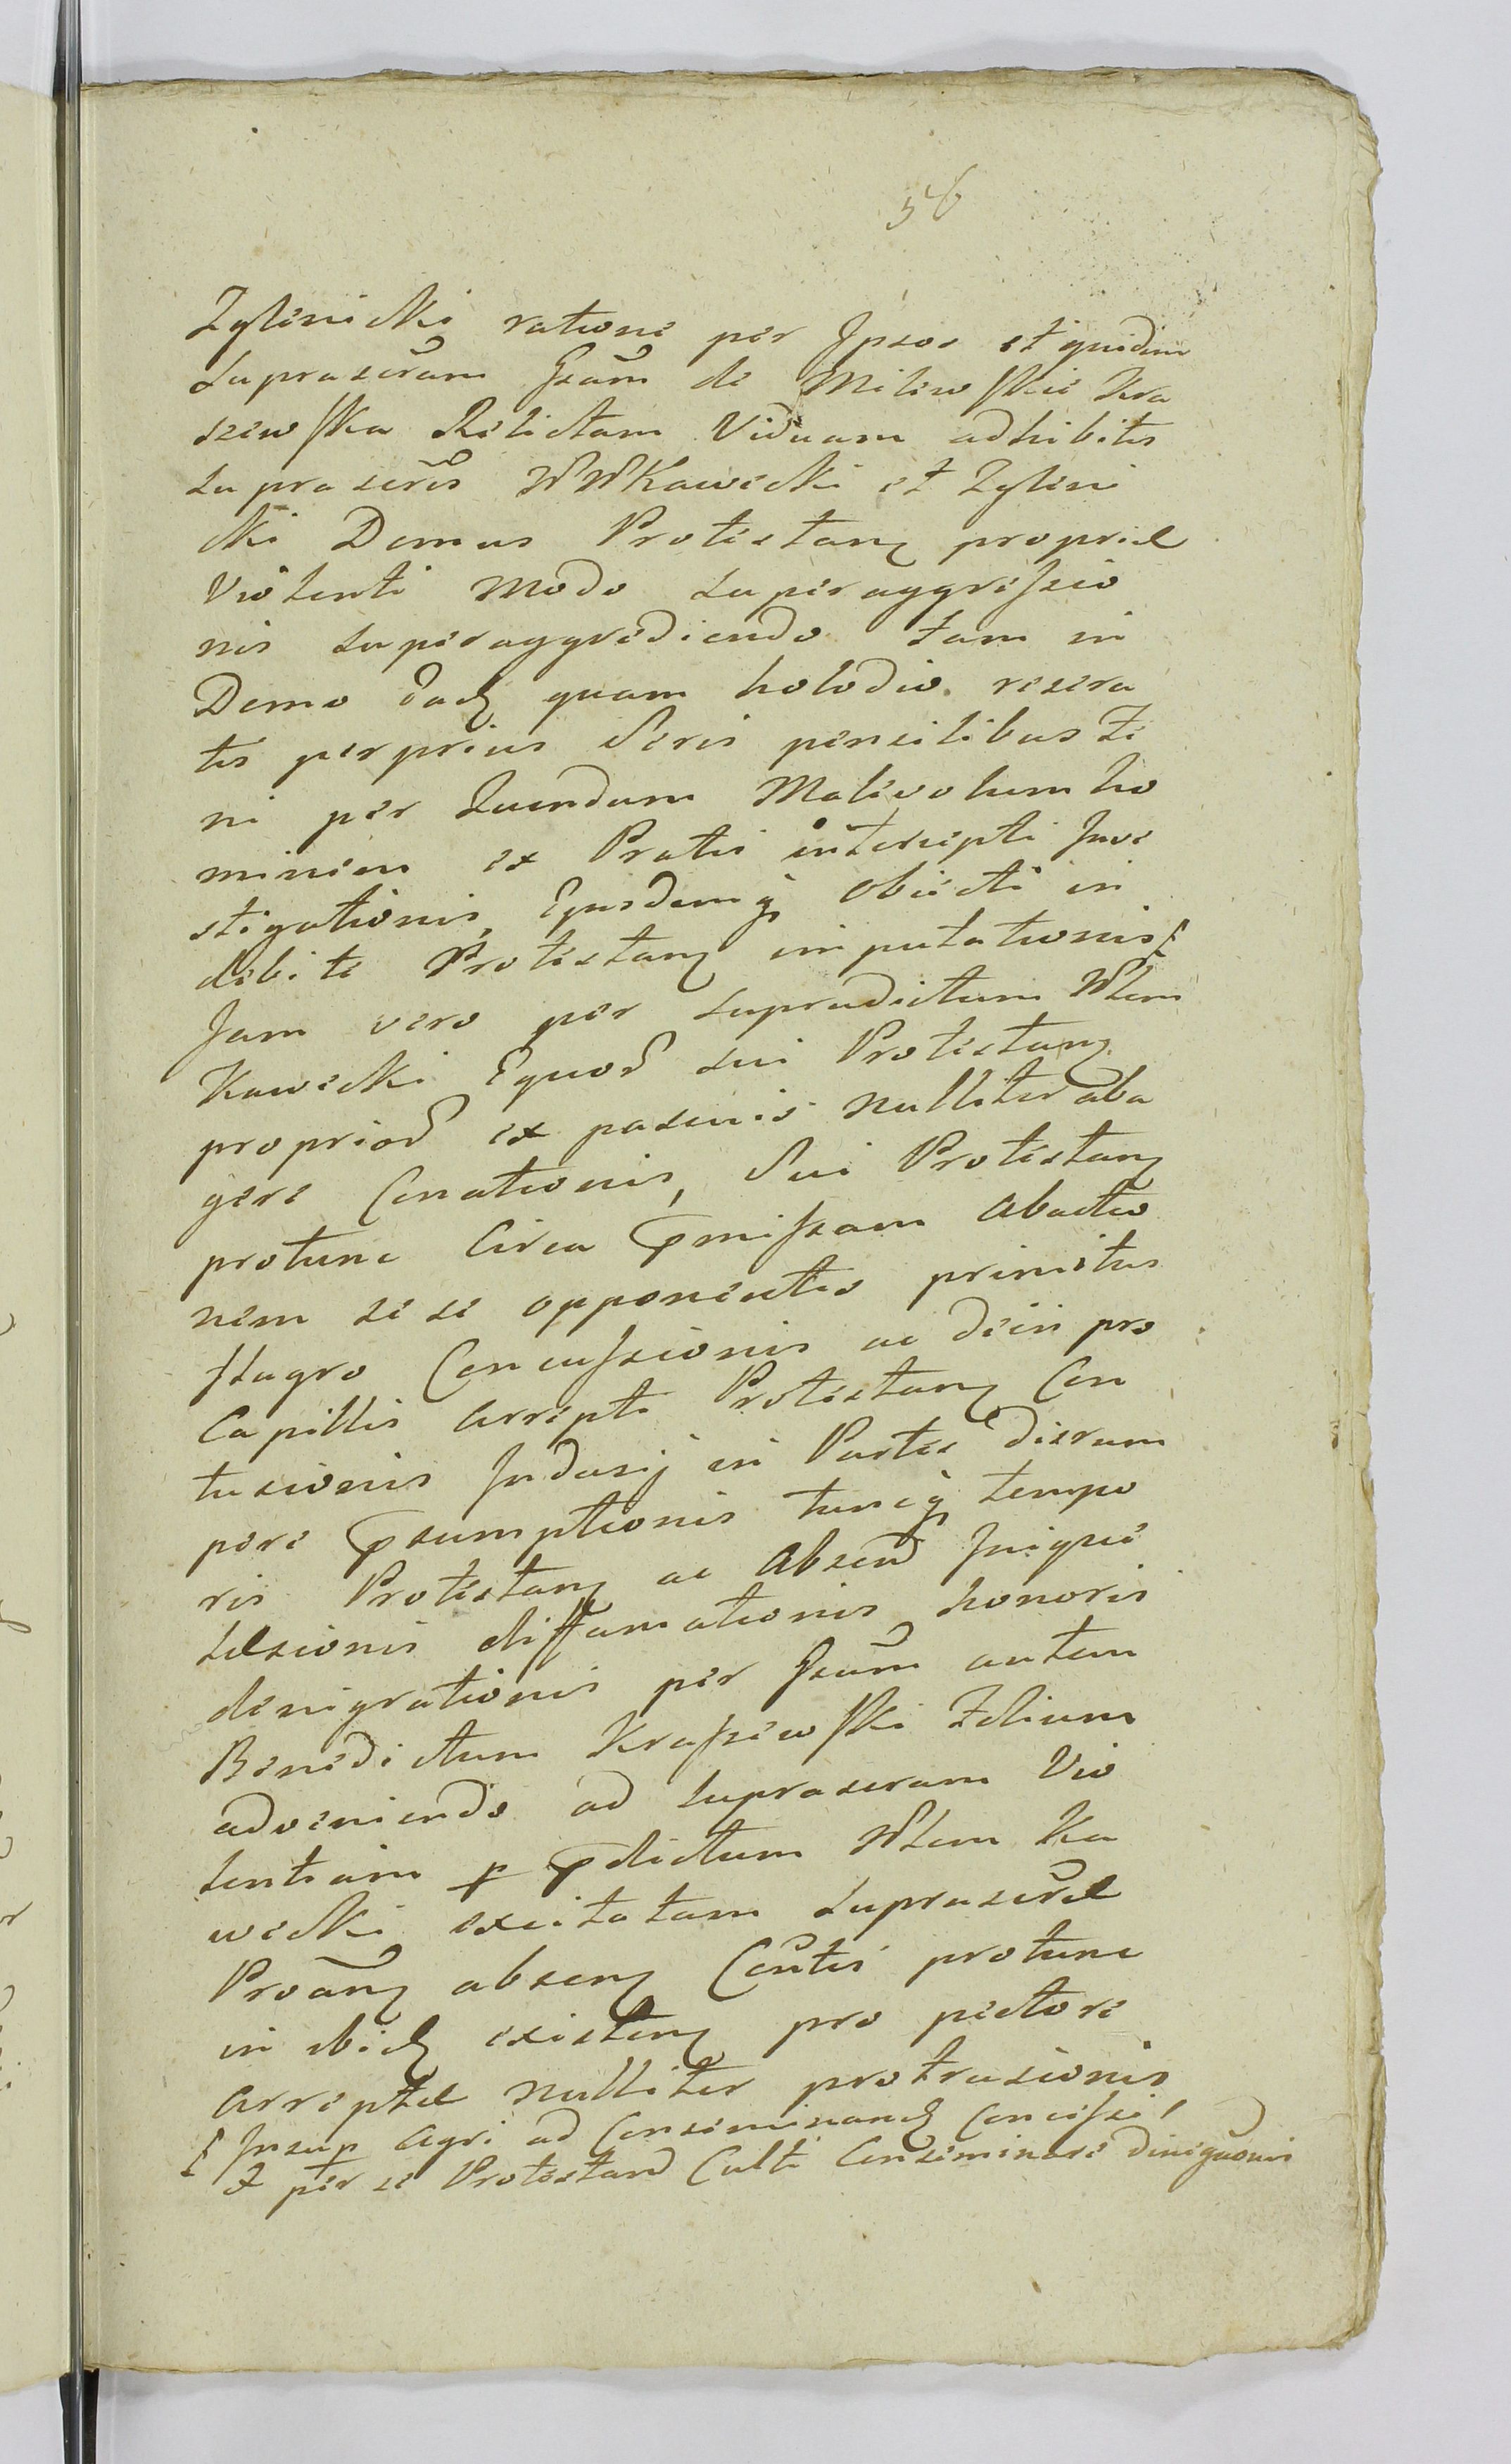 56
Zglinicki ratione per Ipsos et quidem
suprascram Gsam de Milewskie Kra
szewska Relictam Viduam adhibitis
suprascris WWKawecki et Zglini
cki Domus Protestan propriæ
Violenti modo superaggressio
nis superaggrediendo tam in
Domo quam holodio resera
tis perprius Seris pensilibus Fe
ni per quendam Malevolum ho
minem ex Pratis intercepti Inve
stigationis, Ejusdemq obiecti in
debite Protestan imputationis
Jam vero per supradictum Wlem
Kawecki Equos sui Protestan
proprios ex pascuis nulliter aba
gere Conationis, Sui Protestan
protunc Circa pmissam Abactio
nem sese opponentis primitus
flagro Concussionis ac dein pro
Capillis Arrepti Protestan Con
tusionis Indusij in Partes disrum
pere psumptionis tuncq tempo
ris Protestan ac Absen Iniquè
læsionis diffamationis honoris
denigrationis per Gsum autem
Benedictum Kraszewski Filium
adveniendo ad suprascram Vio
lentiam p pdictum Wlem Ka
wecki excitatam suprascræ
Proan absen Contis protunc
in ibid existen pro pectore
arreptæ nulliter protrusionis
Insup Agri ad Conseminand Concessi,
& per se Protestand Culti Conseminare